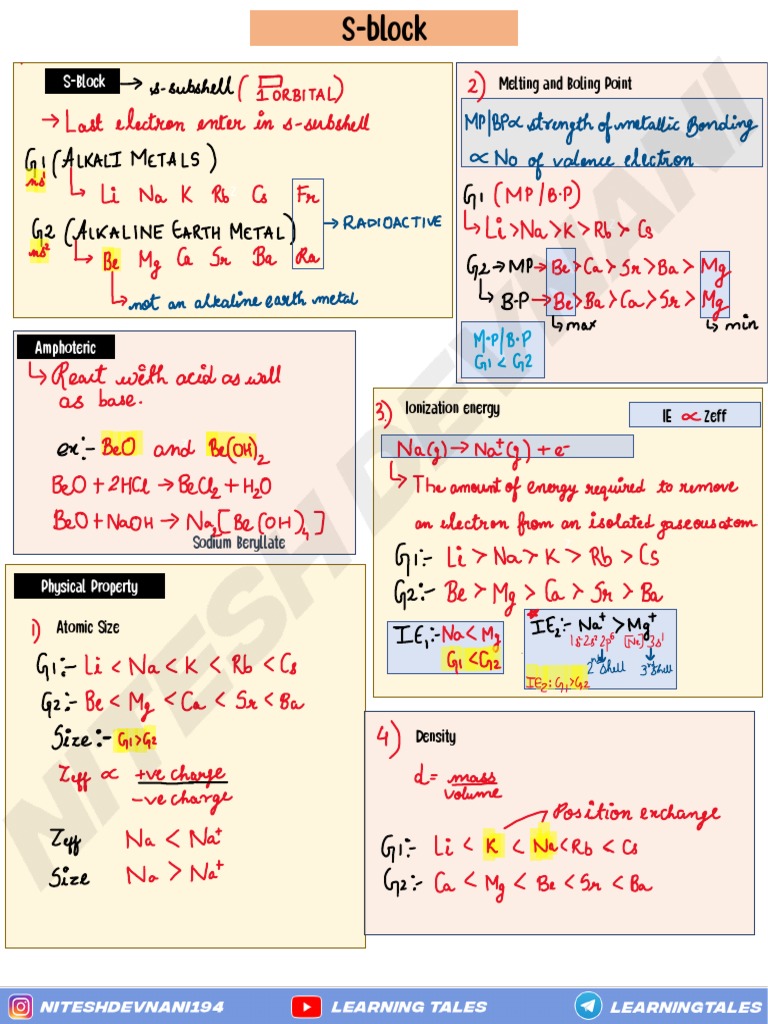 S-block
S-Block → s-subshell ( 1 ORBITAL)
→ Last electron enter in s-subshell
G1 (ALKALI METALS)
ns¹
Li Na K Rb Cs Fr
G2 (ALKALINE EARTH METAL) → RADIOACTIVE
ns²
Be Mg Ca Sr Ba Ra
not an alkaline earth metal
Amphoteric
React with acid as well
as base.
ex:- BeO and Be(OH)₂
BeO + 2HCl → BeCl₂ + H₂O
BeO + NaOH → Na₂[Be(OH)₄]
Sodium Beryllate
Physical Property
1) Atomic Size
G1:- Li < Na < K < Rb < Cs
G2:- Be < Mg < Ca < Sr < Ba
Size:- G1>G2
Zeff ∝ +ve charge
-ve charge
Zeff Na < Na⁺
Size Na > Na⁺
2) Melting and Boling Point
MP/BP ∝ strength of metallic Bonding
∝ No of valence electron
G1 (MP/B.P)
Li>Na>K>Rb>Cs
G2 → MP → Be>Ca>Sr>Ba>Mg
B.P → Be>Ba>Ca>Sr>Mg
max min
M.P/B.P
G1 < G2
3) Ionization energy
IE ∝ Zeff
Na(g) → Na⁺(g) + e⁻
The amount of energy required to remove
an electron from an isolated gaseous atom
G1:- Li > Na > K > Rb > Cs
G2:- Be > Mg > Ca > Sr > Ba
IE₁:- Na < Mg
G1 < G2
*IE₂:- Na⁺ > Mg⁺
1s²2s²2p⁶ [Ne]3s¹
2nd shell 3rd shell
IE₂: G1>G2
4) Density
d = mass
volume
Position exchange
G1:- Li < K < Na < Rb < Cs
G2:- Ca < Mg < Be < Sr < Ba
NITESH DEVNANI
NITESHDEVNANI194 LEARNING TALES LEARNINGTALES